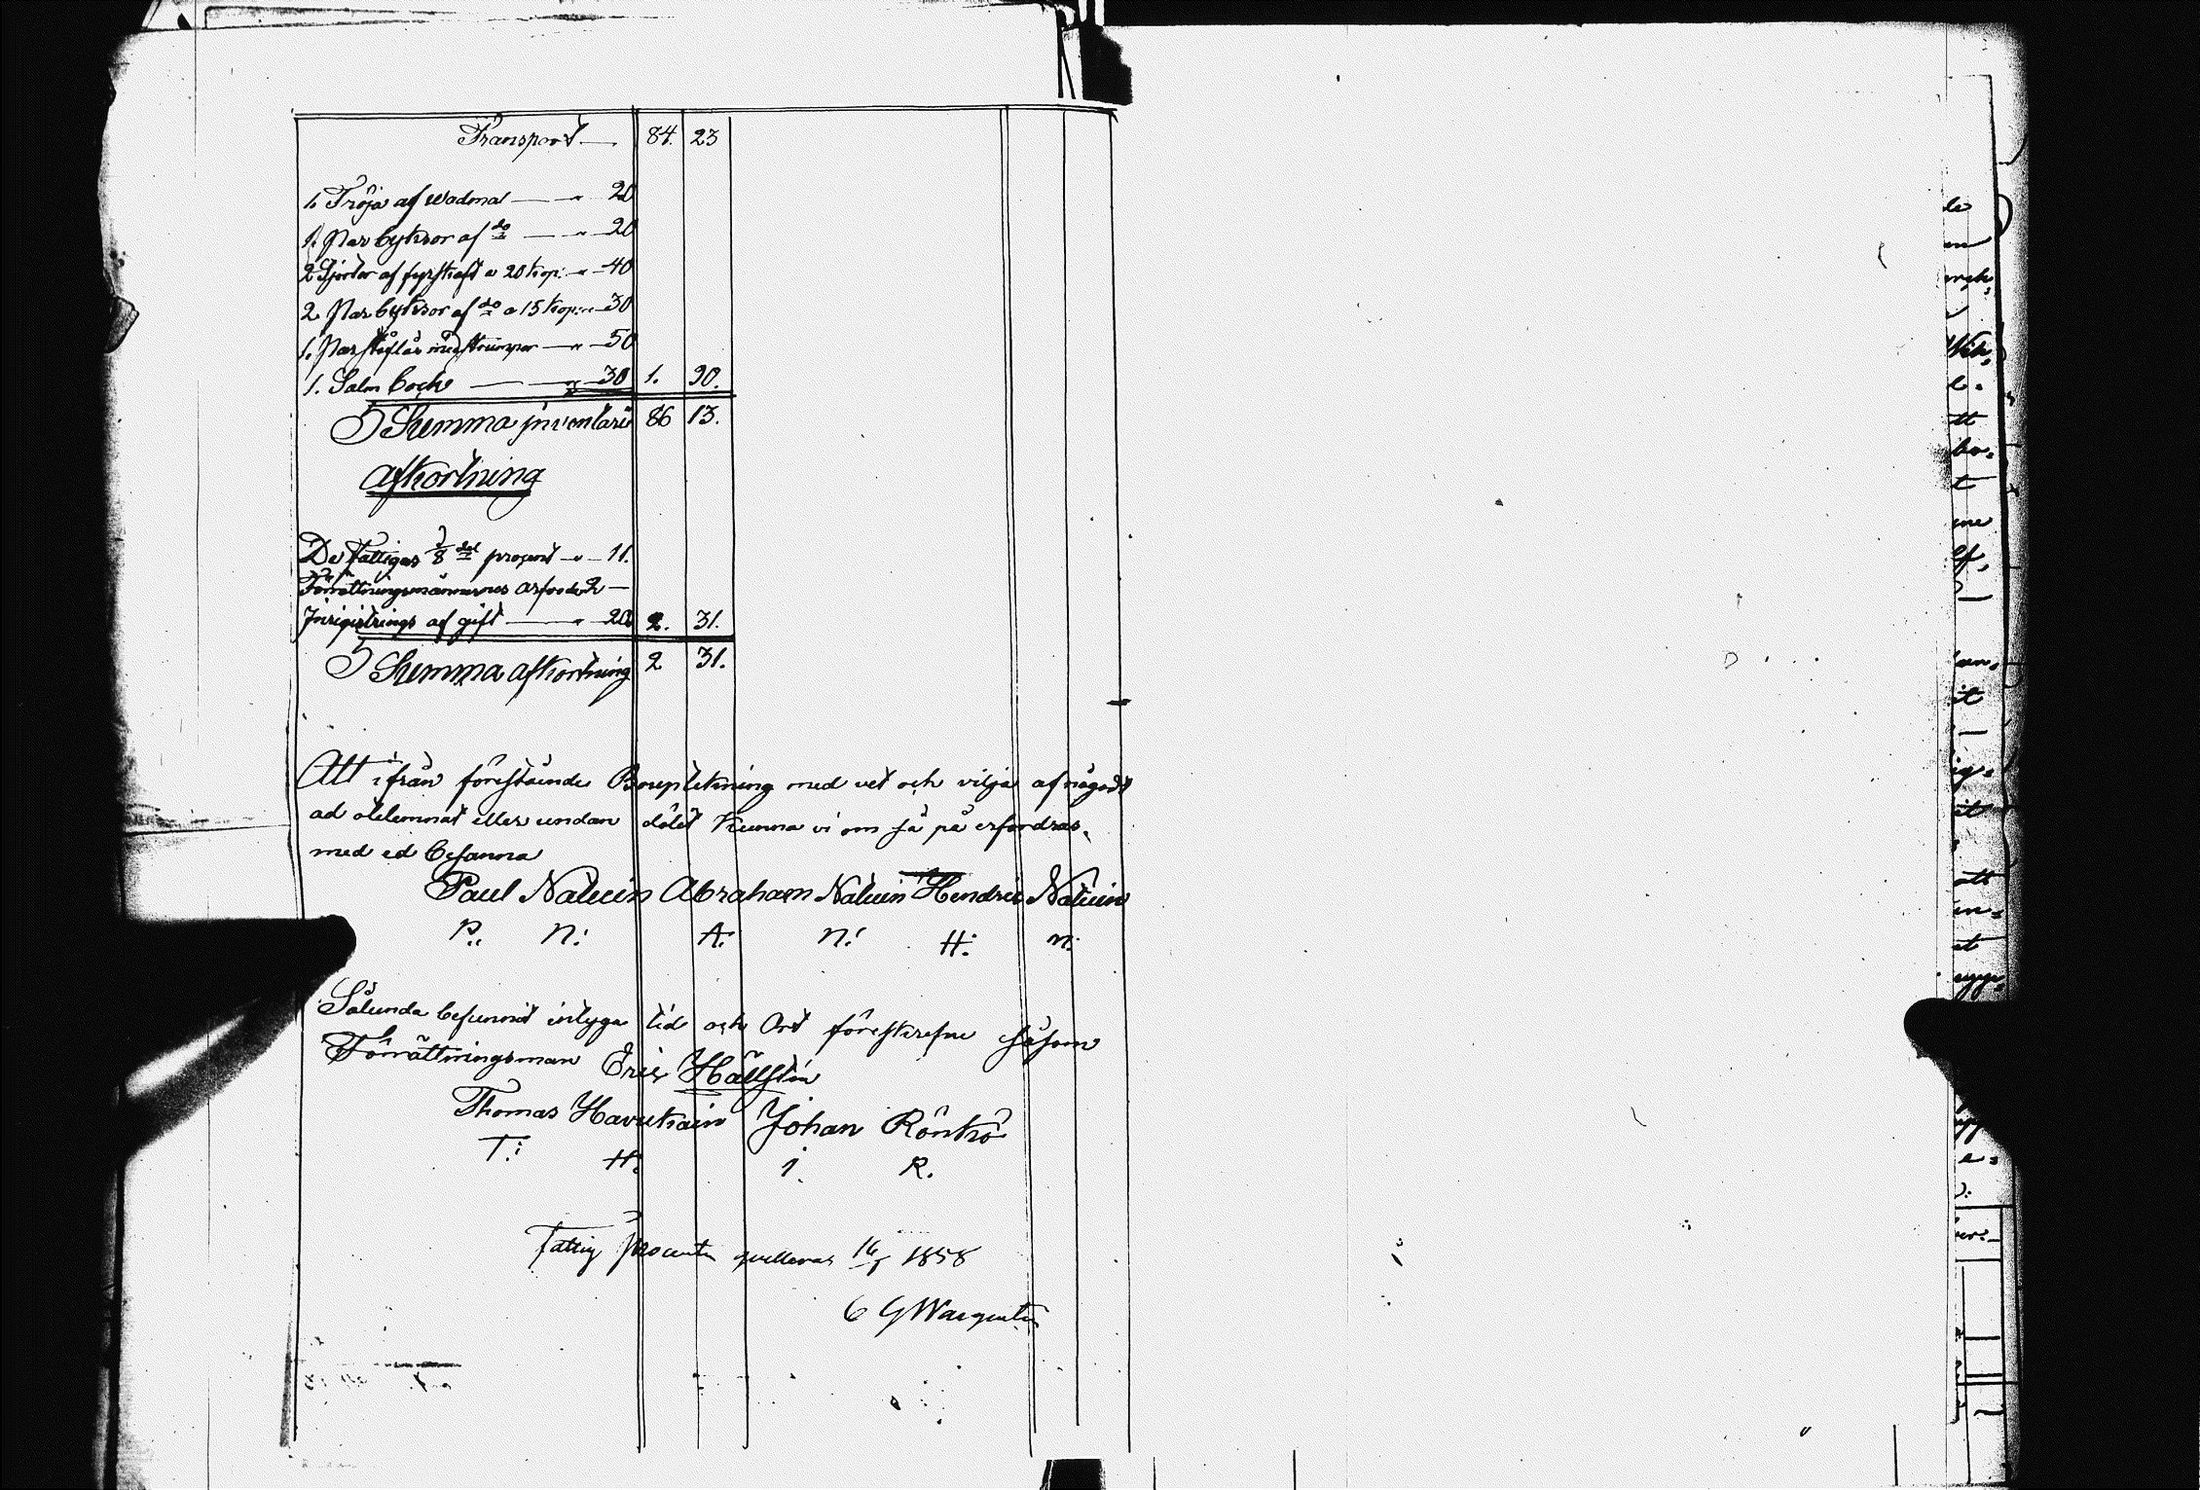 Transport — 84. 23
1. Tröja af wadmal — " — 20
1. Par byksor af do — " — 20
2 Sjortor af fyrskaft a 20 kop: " — 40
2. Par byksor af do a 15 kop: " — 30
1. Par stöflar med strumpor — " — 50
1. Salm bock — " — 30 1. 90.
Summa inventarie 86 13.
Afkortning
De Fattigas 1/8 del prosent — " — 11.
Förrättningsmännernes arfvode 2 —
Inrigistrings af gift — " — 20. 2. 31.
Summa afkortning 2 31.
Att ifrån förestående Boupteckning med vet och vilja af någodt
ad olelemnat eller undan dölet kunna vi om så på erfordras,
med ed besanna
Paul Naluin Abraham Naluin Hendric Naluin
P.. N: A: N: H: N:
Sålunda befunnit intyga tid och Ort förestrefne såsom
Förrättningsman Eric Hällstén
Thomas Havukain Johan Rönkö
T: H: I. R.
Fattig Procenten qvitteras 1858
C G Wargentin